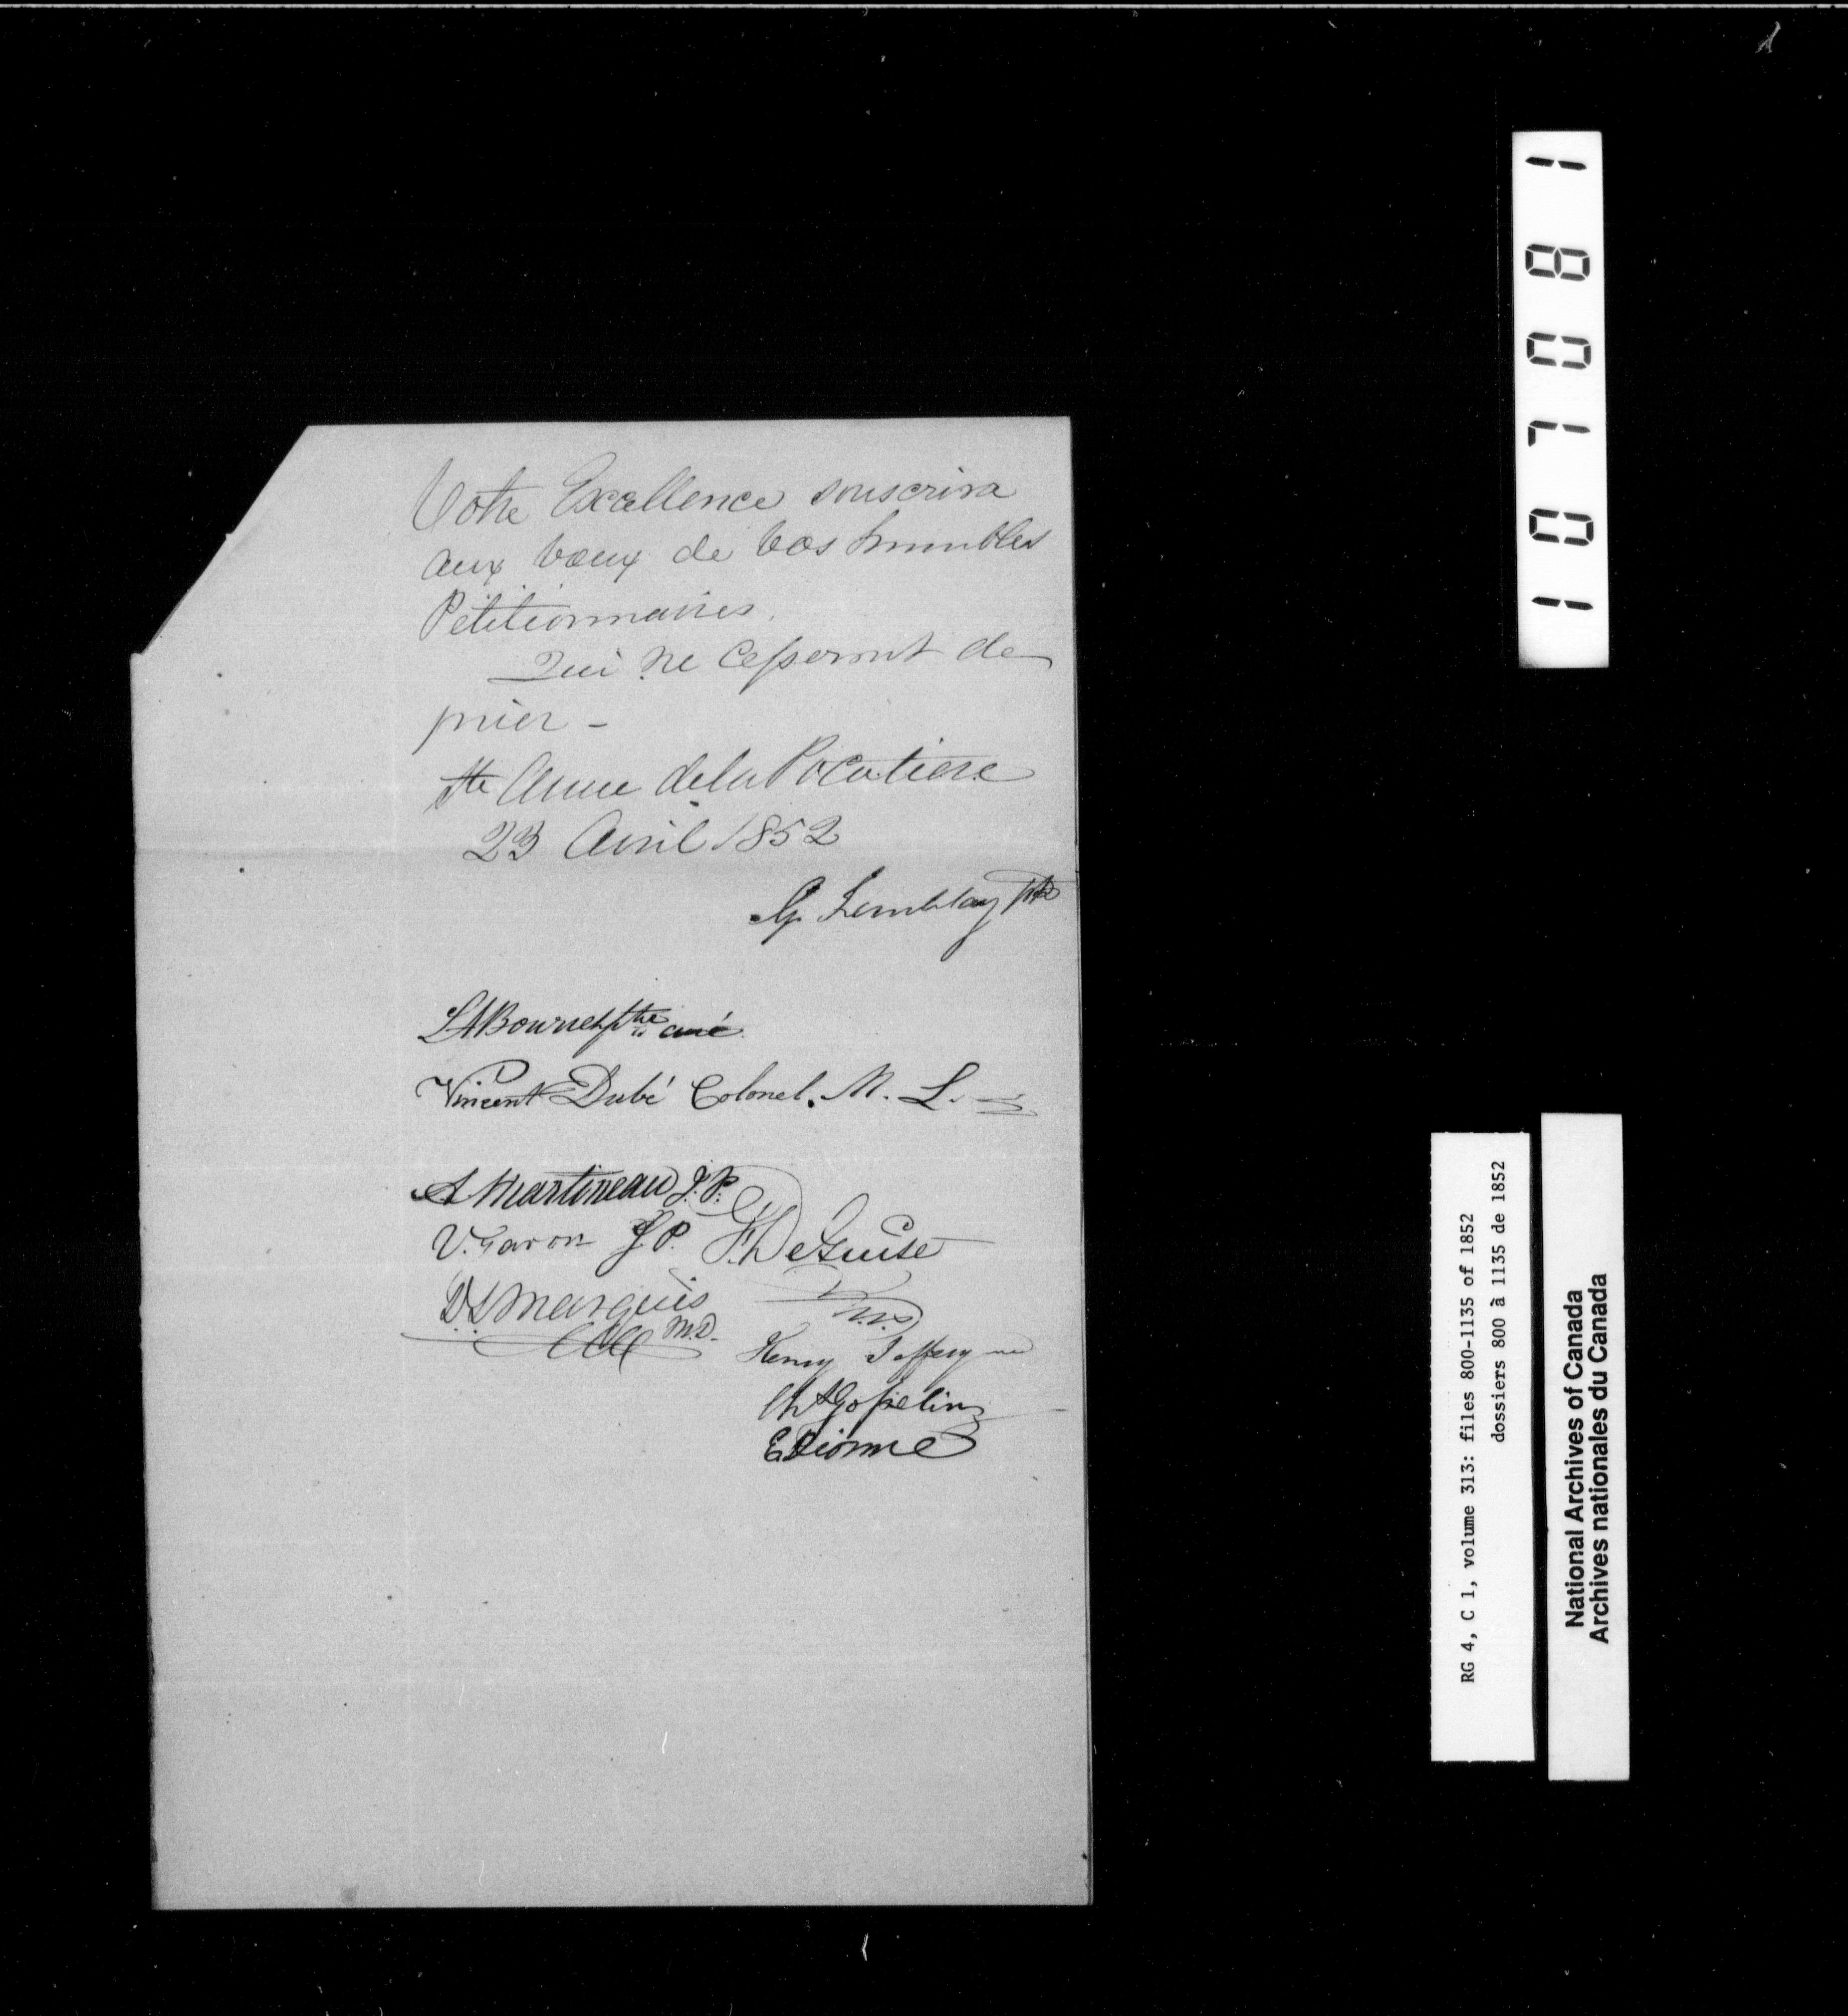 Votre Excellence souscrira
aux vœux de Vos humbles
Pétitionnaires.
Qui ne Cesseront de
prier -
Ste Anne de la Pocatiere
23 Avril 1852
G. Tremblay Ptre
L A Bourret ptre curé
Vincent Dubé Colonel. M. L.
A Martineau J. P.
V. Garon J. P. F. DeGuise
N.P.
D L Marquis
M.D.
Henry
Chs Gosselin
E Dionne
107081
RG 4, C 1, volume 313: files 800-1135 of 1852
dossiers 800 à 1135 de 1852
National Archives of Canada
Archives nationales du Canada